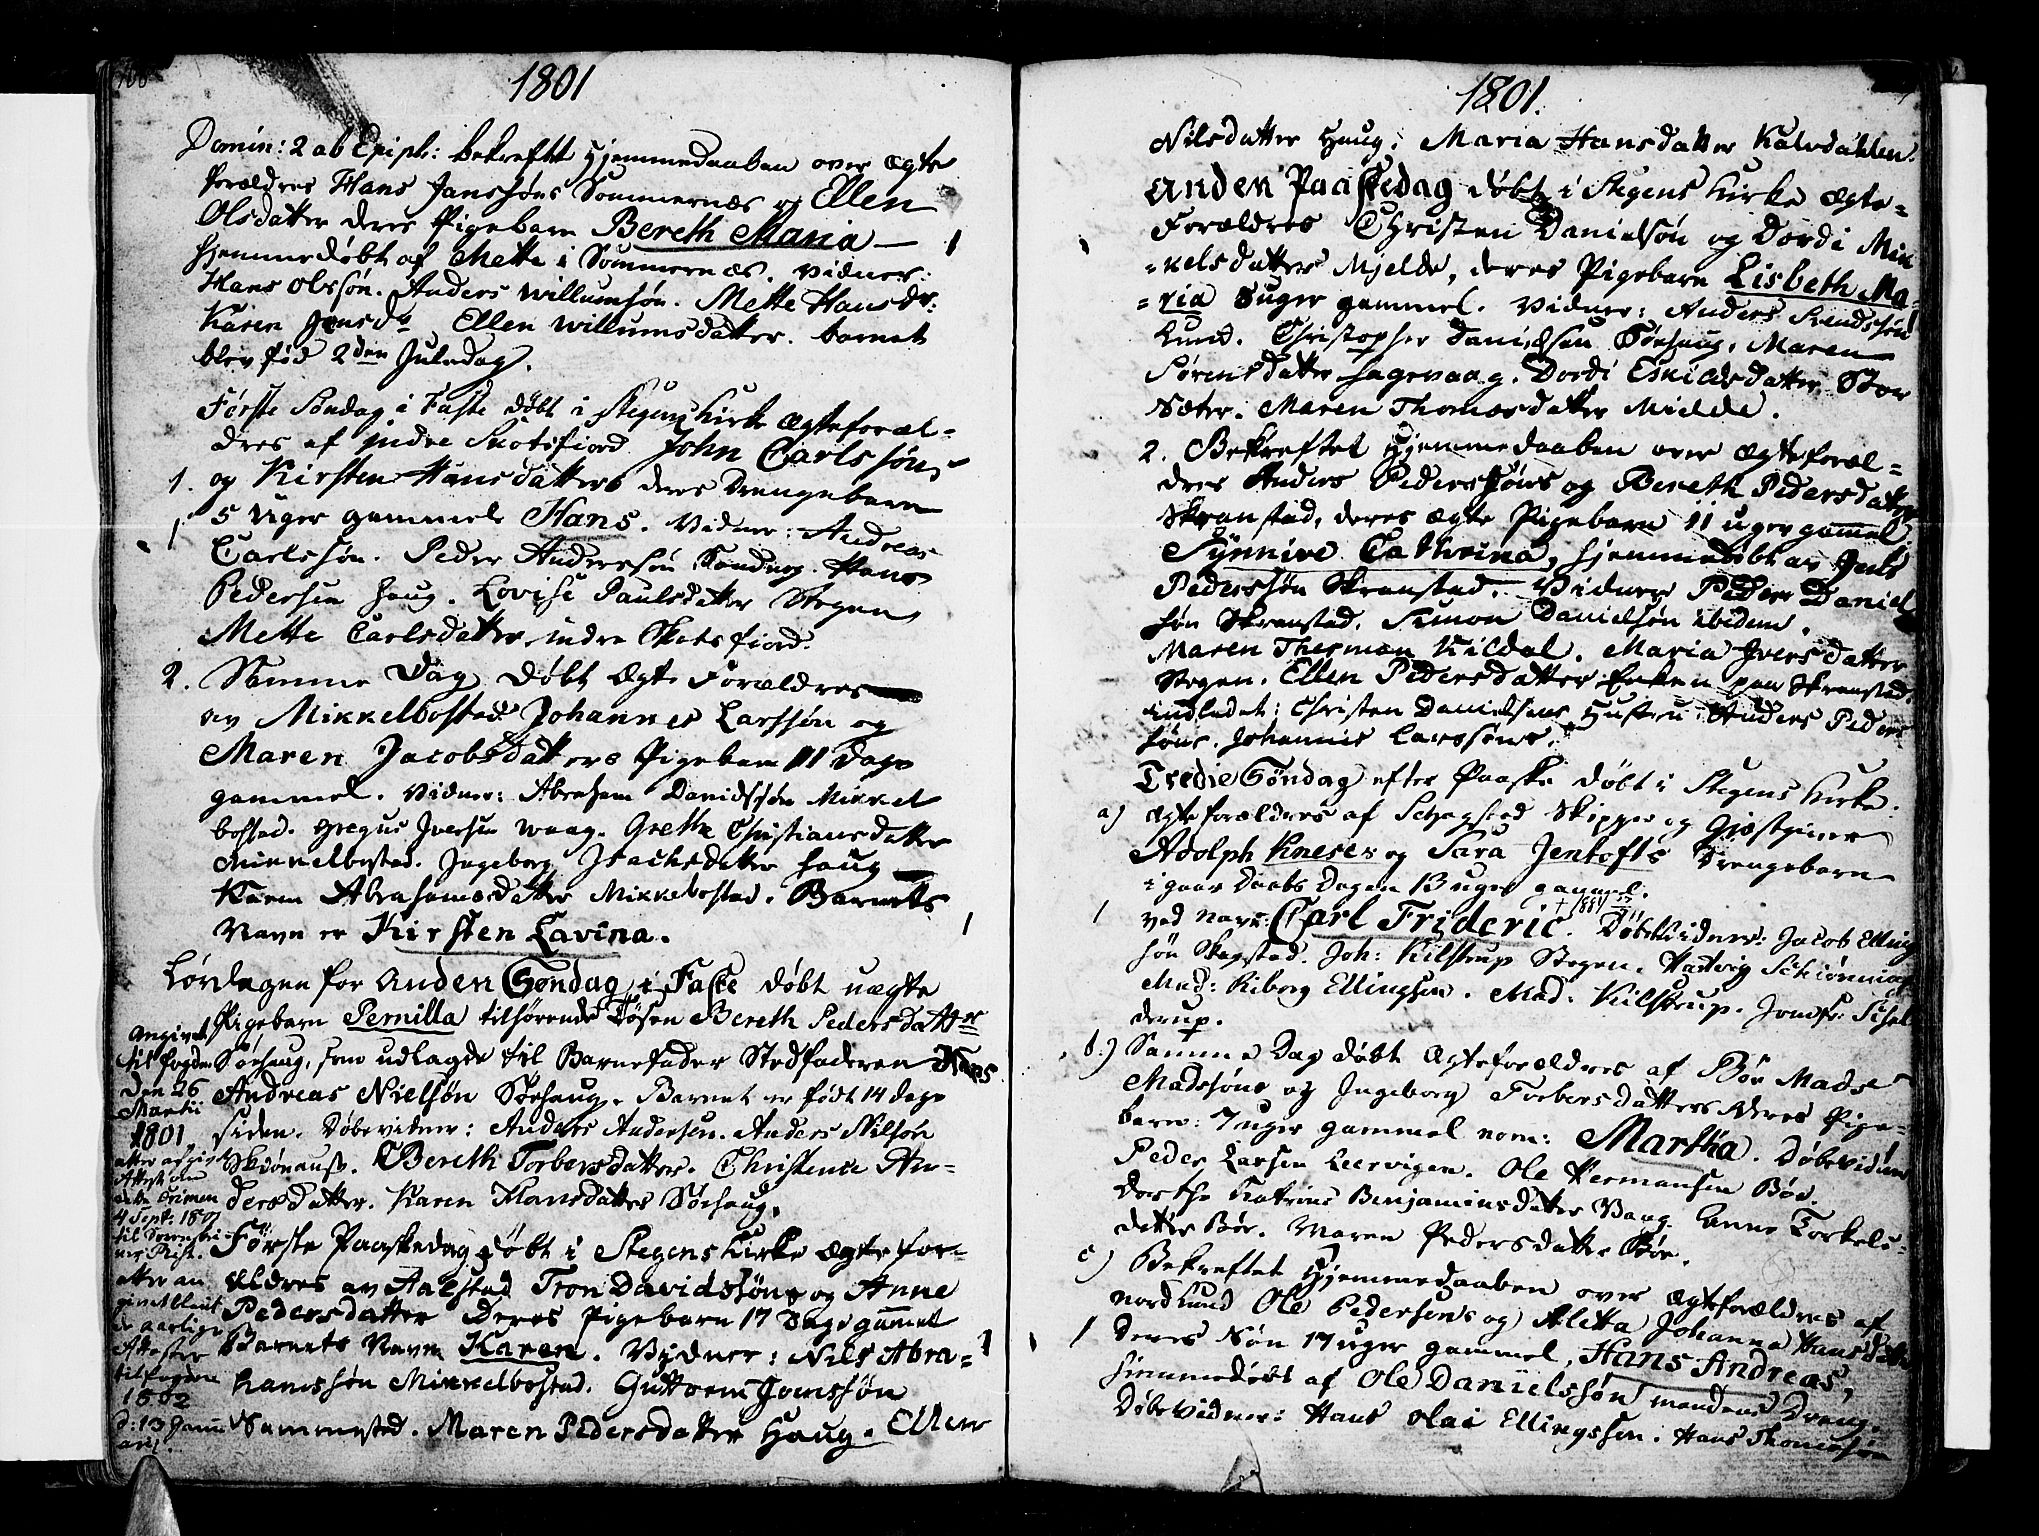 1801
Domin: 2 ab Epiph: bekreftet Hjemmedaaben over Ægte
forældres Hans Janssøns Sommernæs og Ellen
Olsdatter deres Pigebarn Bereth Maria —
hjemmedøbt af Mette i Sommernæs. Vidner:
Hans Olssøn. Anders Willumsøn. Mette Hansdr:
Karen Jensd. Ellen Willumsdatter. barnet
blev fød 2den Juledag.
Første Søndag i Faste døbt i Stegens Kirke Ægteforæl-
dres af indre Skotsfiord John Carlssøns
1. og Kirsten Hansdatters deres Drengebarn
1 5 Uger gammel Hans. Vidner: Andreas
Carlssøn. Peder Anderssøn. Hans
Pedersen Haug. Lovise Paulsdatter Stegen
Mette Carlsdatter indre Skotsfiord.
2. Samme Dag døbt Ægte Forældres
av Mikkelbostad Johannes Larssøn og
Maren Jacobsdatters Pigebarn 11 Dage
gammel. Vidner: Abraham Davidssøn Mikkel
bostad. Gregus Iversen Waag. Grethe Christiansdatter
Mikkelbostad. Ingeborg Isachsdatter Haug
Karen Abrahamsdatter Mikkelbostad. Barnets
Navn er Kirsten Lavina. 1
Lørdagen for anden Søndag i Faste døbt uægte
Pigebarn Pernilla tilhørende Tøsen Bereth Pedersdatter
Sørhaug, som udlagde til Barnefader Stedfaderen Hans
Andreas Nielsøn Sørhaug. Barnet er født 14 dage
siden. Døbevidner: Anders Andersen. Anders Nilsøn
Bereth Torbersdatter. Christence An-
dersdatter. Karen Hansdatter Sørhaug.
Angivet
til fogden
den 26
Martii
1801
4 Sept: 1801
1802
d: 13 Janu
arj.
Første Paaskedag døbt i Stegens Kirke Ægte for-
ældres av Aalstad Tron Davidssøns og Anne
Pedersdatter Deres Pigebarn 17 Dage gammel
Barnets Navn Karen. Vidner: Nils Abra- 1
hamssøn Mikkelbostad. Guttorm Joenssøn
Sammested. Maren Pedersdatter Haug. Ellen
1801.
Nilsdatter Haug. Maria Hansdatter Kalvdahlen.
Anden Paaskedag døbt i Stegens Kirke Ægte-
Forældres Christen Danielsøn og Dordi Mik
kelsdatters Mjelde, deres Pigebarn Lisbeth Ma-
ria 8 uger gammel. Vidner: Anders
Lund. Christopher Danielsen Sørhaug. Maren
Sørensdatter Hagevaag. Dordi Eskildsdatter Stor
Sæter. Maren Thomasdatter Mielde.
2. Bekreftet Hjemmedaaben over Ægteforæl-
dres Anders Pederssøns og Bereth Pedersdatter
Skranstad, deres ægte Pigebarn 11 uger gammel
Synnive Cathrina, hjemmedøbt av Jens
Pederssøn Skranstad. Vidner Peder Daniel
søn Skranstad. Simon Danielsøn ibidem.
Maren Kildal. Maria Iversdatter
Stegen. Ellen Pedersdatter Enken paa Skranstad.
indledet: Christen Danielsens Hustru. Anders Peder
søns. Johannis Larssøns.
Tredie Søndag efter Paaske døbt i Stegens Kirke.
a) Ægteforældres af Schagstad Skipper og Giæstgiver
Adolph Kneser og Sara Jentofts Drengebarn
i gaar Daabs Dagen 13 uger gammel.
† 1884
1 ved navn: Carl Frideric. Døbevidner: Jacob Elling
søn Skagstad. Joh: Kilstrup Stegen. Hartvig
Mad: Riborg Ellingsen. Mad: Kilstrup. Jomfr:
derup.
b.) Samme Dag døbt Ægteforældres af Bøe Mads
Madssøns og Ingeborg Torbersdatters deres Pige-
barn: 7 uger gammel nom: Martha. Døbevidner
Peder Larsen Leervigen. Ole Hermansen Bøe. 1
Dorthe Katrine Benjaminsdatter Vaag. Anne Torkels-
datter Bøe. Maren Pedersdatter Bøe.
c) Bekreftet Hjemmedaaben over Ægteforældres af
Nordlund Ole Pedersens og Aletta Johanna Hansdatter
1 Deres Søn 17 uger gammel, Hans Andreas,
hjemmedøbt af Ole Danielssøn mandens Dreng.
Døbevidner: Hans Olai Ellingssen. Hans Thomæssøn